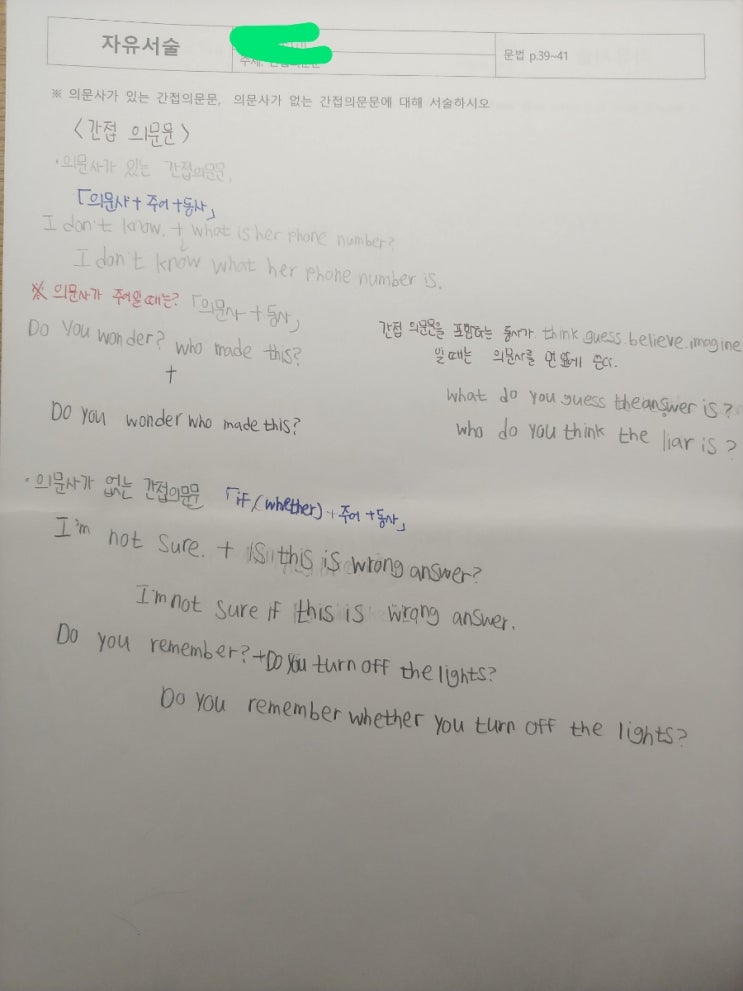 자유서술
문법 p.39~41
※ 의문사가 있는 간접의문문, 의문사가 없는 간접의문문에 대해 서술하시오
<간접 의문문>
·의문사가 있는 간접의문문,
「의문사+주어+동사」
I don't know. + what is her phone number?
I don't know what her phone number is.
※ 의문사가 주어일 때는? 「의문사+동사」
Do you wonder? who made this?
+
Do you wonder who made this?
간접 의문문을 포함하는 동사가 think.guess.believe.imagine
일 때는 의문사를 맨 앞에 쓴다.
what do you guess the answer is?
who do you think the liar is?
·의문사가 없는 간접의문문 「if/(whether)+주어+동사」
I'm not sure. + IS this is wrong answer?
I'm not sure if this is wrong answer.
Do you remember?+Do you turn off the lights?
Do you remember whether you turn off the lights?